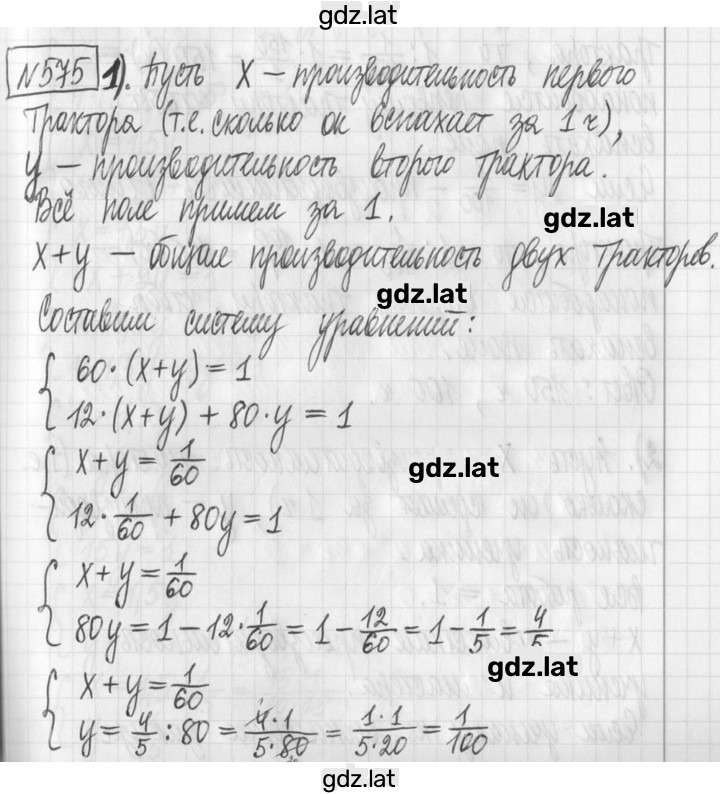 gdz.lat
№575 1). Пусть x – производительность первого
трактора (т.е. сколько он вспахает за 1 ч),
y – производительность второго трактора.
Всё поле примем за 1.
gdz.lat
x+y – общая производительность двух тракторов.
gdz.lat
Составим систему уравнений:
60·(x+y)=1
12·(x+y)+80·y=1
x+y=1/60
gdz.lat
12·1/60+80y=1
x+y=1/60
80y=1–12·1/60=1–12/60=1–1/5=4/5
gdz.lat
x+y=1/60
y=4/5:80=4·1/5·80=1·1/5·20=1/100
gdz.lat